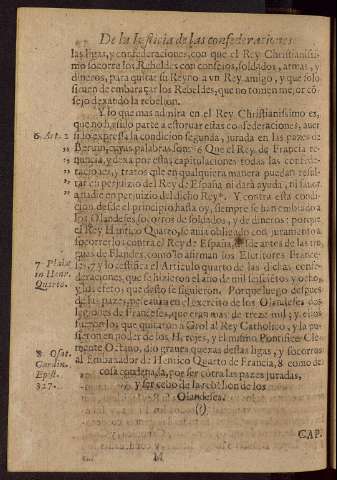 De la Iusticia de las confederaciones
las ligas, y confederaciones, con que el Rey Christianissi-
mo socorre los Rebeldes con consejos, soldados, armas, y
dineros, para quitar su Reyno a vn Rey amigo, y que solo
siruen de embaraçar los Rebeldes, que no tomen mejor cõ
sejo dexando la rebelion.
Y lo que mas admira en el Rey Christianissimo es,
que no aya sido parte a estoruar estas confederaciones, auer
6. Art. 2
sido expressa la condicion segunda, jurada en las pazes de
Beruin, cuyas palabras son: 6 Que el Rey de Francia re-
nuncia, y dexa por estas capitulaciones todas las confede-
raciones, y tratos que en qualquiera manera puedan resul-
tar en perjuizio del Rey de España, ni dará ayuda, ni
en perjuizio del dicho Rey. Y contra esta condi-
cion desde el principio hasta oy, siempre se han embiado a
los Olandeses socorros de soldados, y de dineros: porque
el Rey Henrico Quarto, se auia obligado con juramento a
socorrerlos contra el Rey de España, antes de las tre-
guas de Flandes, como lo afirman los Escritores France-
7. 
in Henr.
Quarto.
ses, 7 y lo testifica el Articulo quarto de las dichas confe-
deraciones, que se hizieron el año de mil seiscientos y ocho,
y los efetos que desto se siguieron. Porque luego despues
de las pazes, peleauan en el exercito de los Olandeses dos
legiones de Franceses, que eran mas de treze mil; y ellos
fueron los que quitaron a Grol al Rey Catholico, y la pu-
sieron en poder de los Herejes, y el mismo Pontifice Cle-
8. Osat.
Cardin.
Epist.
327.
mente Octauo, dio graues quexas destas ligas, y socorros
al Embaxador de Henrico Quarto de Francia, 8 como de
cosa tan indigna, por ser côtra las pazes juradas,
y ser cebo de la rebelion de los
Olandeses.
(?)
CAP.